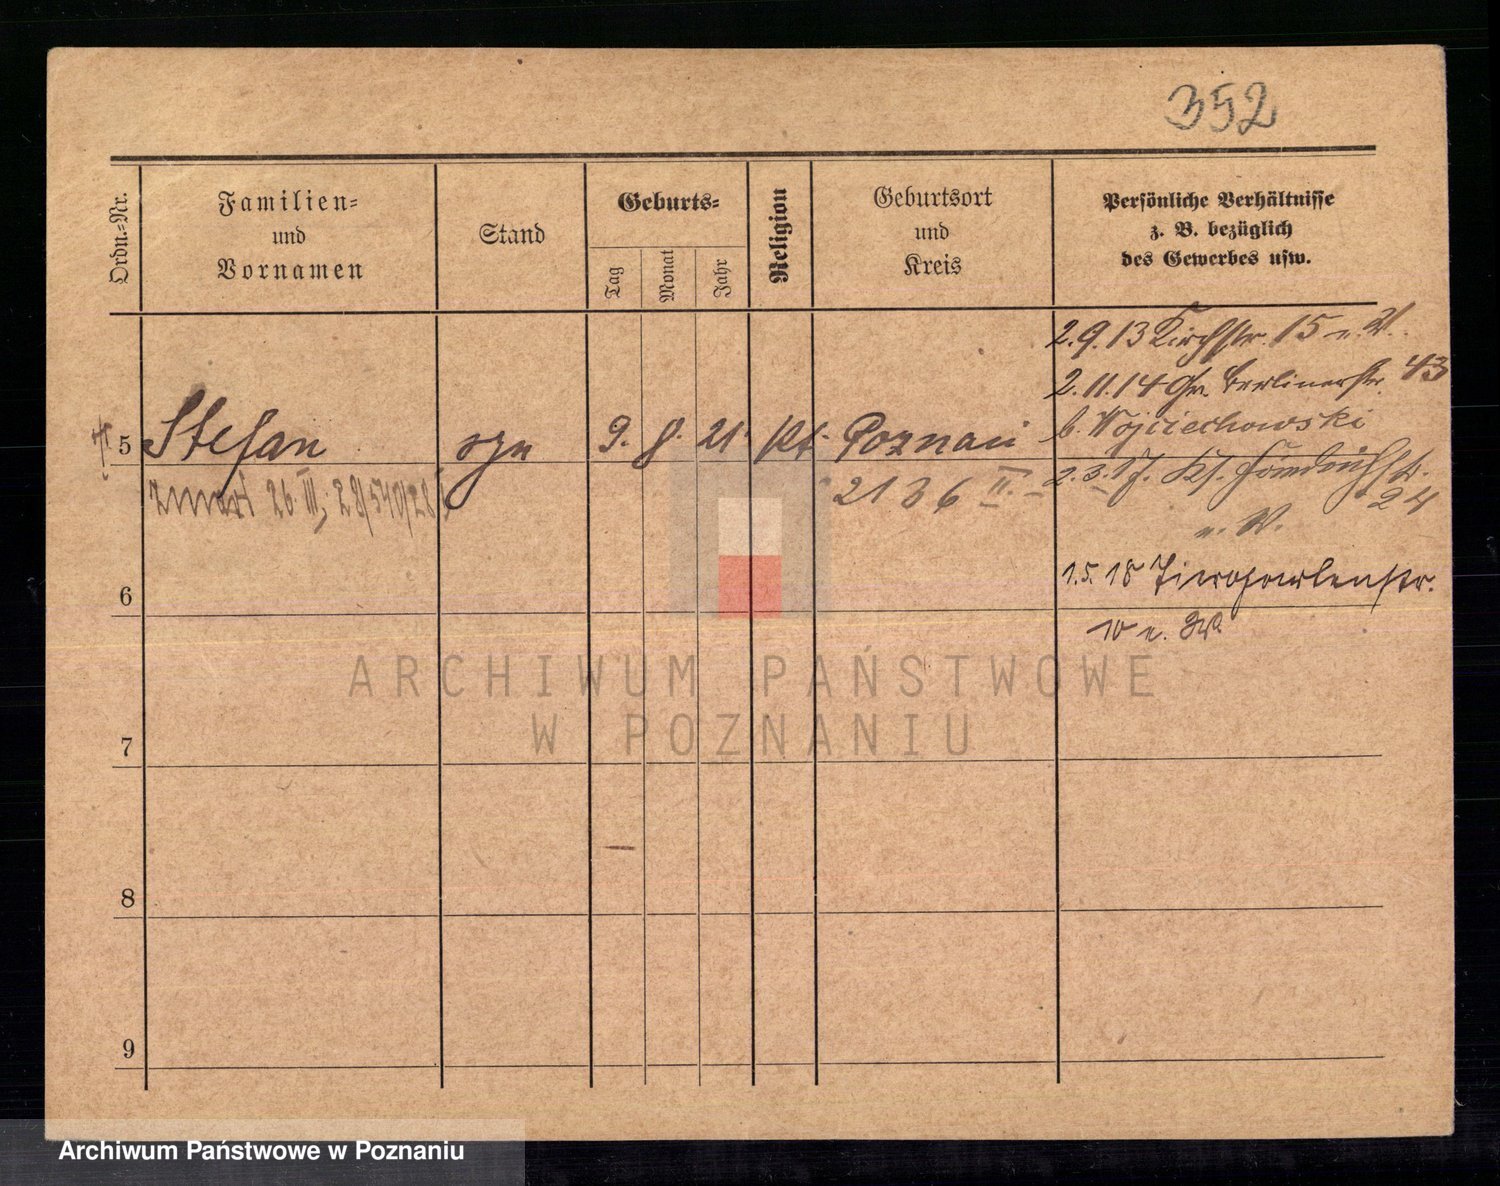 352
Ordn.=Nr.
Familien=
und
Vornamen
Stand
Geburts=
Tag
Monat
Jahr
Religion
Geburtsort
und
Kreis
Persönliche Verhältnisse
z. B. bezüglich
des Gewerbes usw.
2.9.13 Kirchstr. 15 u. W.
2.11.14 Gr. Berlinerstr. 43
b. Wojciechowski
5 Stefan syn 9. 8. 21. kt. Poznań
zmarł 26 III; 28/540/28
2136 II. –
2.3.17. Kl.
24
u. W.
1.5.18 Tiergartenstr.
10 u. W.
6
7
8
9
ARCHIWUM PAŃSTWOWE
W POZNANIU
Archiwum Państwowe w Poznaniu